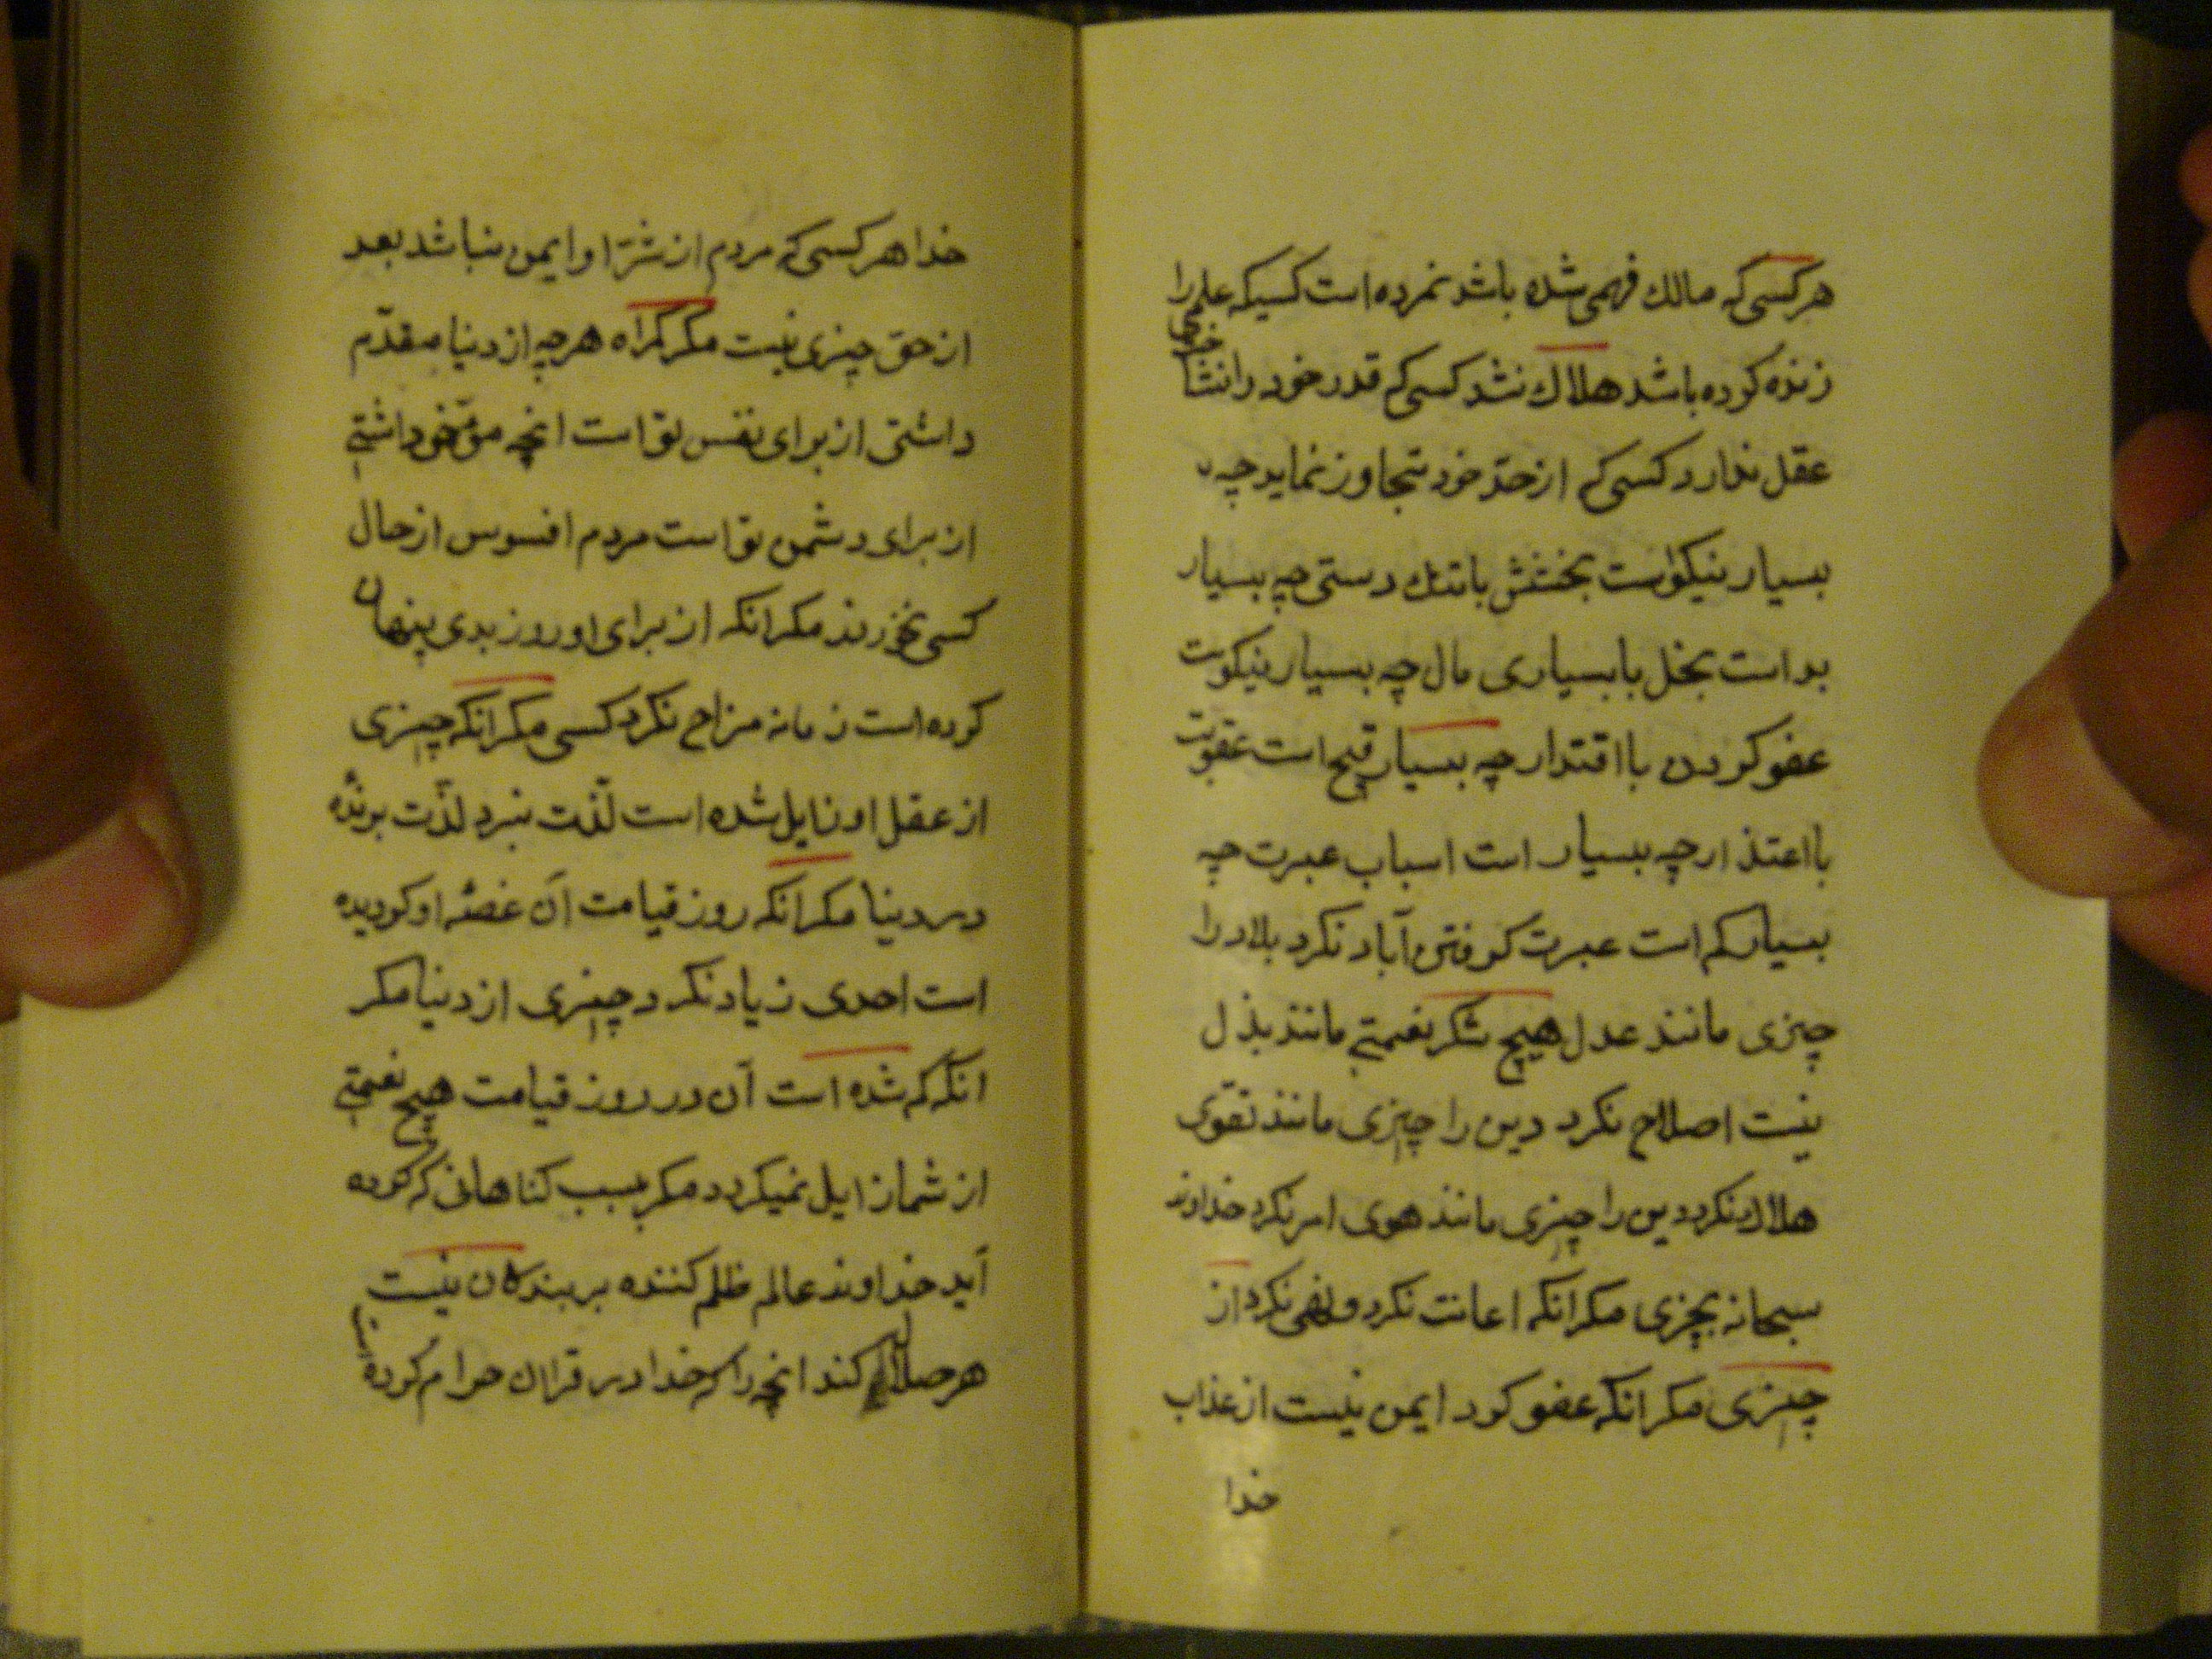 هر کسی که مالک فهمی شده باشد نمرده است کسیکه علمی را
زنده کرده باشد هلاک نشد کسی که قدر خود را نشنا
عقل ندارد کسی که از حدّ خود تجاوز نماید چه
بسیار نیکوست بخشش با تنک دستی چه بسیار
بد است بخل با بسیاری مال چه بسیار نیکوست
عفو کردن با اقتدار چه بسیار قبیح است عقوبت
با اعتذار چه بسیار است اسباب عبرت چه
بسیار کم است عبرت کرفتن آباد نکرد بلاد را
چیزی مانند عدل هیچ شکر نعمتی مانند بذل
نیست اصلاح نکرد دین را چیزی مانند تقوی
هلاک نکرد دین را چیزی مانند هوی امر نکرد خداوند
سبحانه بچیزی مکر انکه اعانت نکرد و نهی نکرد از
چیزی مکر انکه عفو کرد ایمن نیست از عذاب
خدا
خدا هر کسی که مردم از شرّ او ایمن نباشد بعد
از حق چیزی نیست مکر کمراه هر چه از دنیا مقدّم
داشتی از برای نفس تو است انچه مؤخّر داشتی
از برای دشمن تو است مردم افسوس از حال
کسی نخورند مکر انکه از برای او روز بدی پنهان
کرده است زمانه مزاح نکرد کسی مکر انکه چیزی
از عقل او زایل شده است لذّت نبرد لذّت برنده
در دنیا مکر انکه روز قیامت آن غصّه او کردیده
است احدی زیاد نکرد چیزی از دنیا مکر
انکه کم شده است آن در روز قیامت هیچ نعمتی
از شما زایل نمیکردد مکر بسبب کناهانی که کرده
آید خداوند عالم ظلم کننده بر بندکان نیست
هر حلال کند انچه را که خدا در قران حرام کرده است